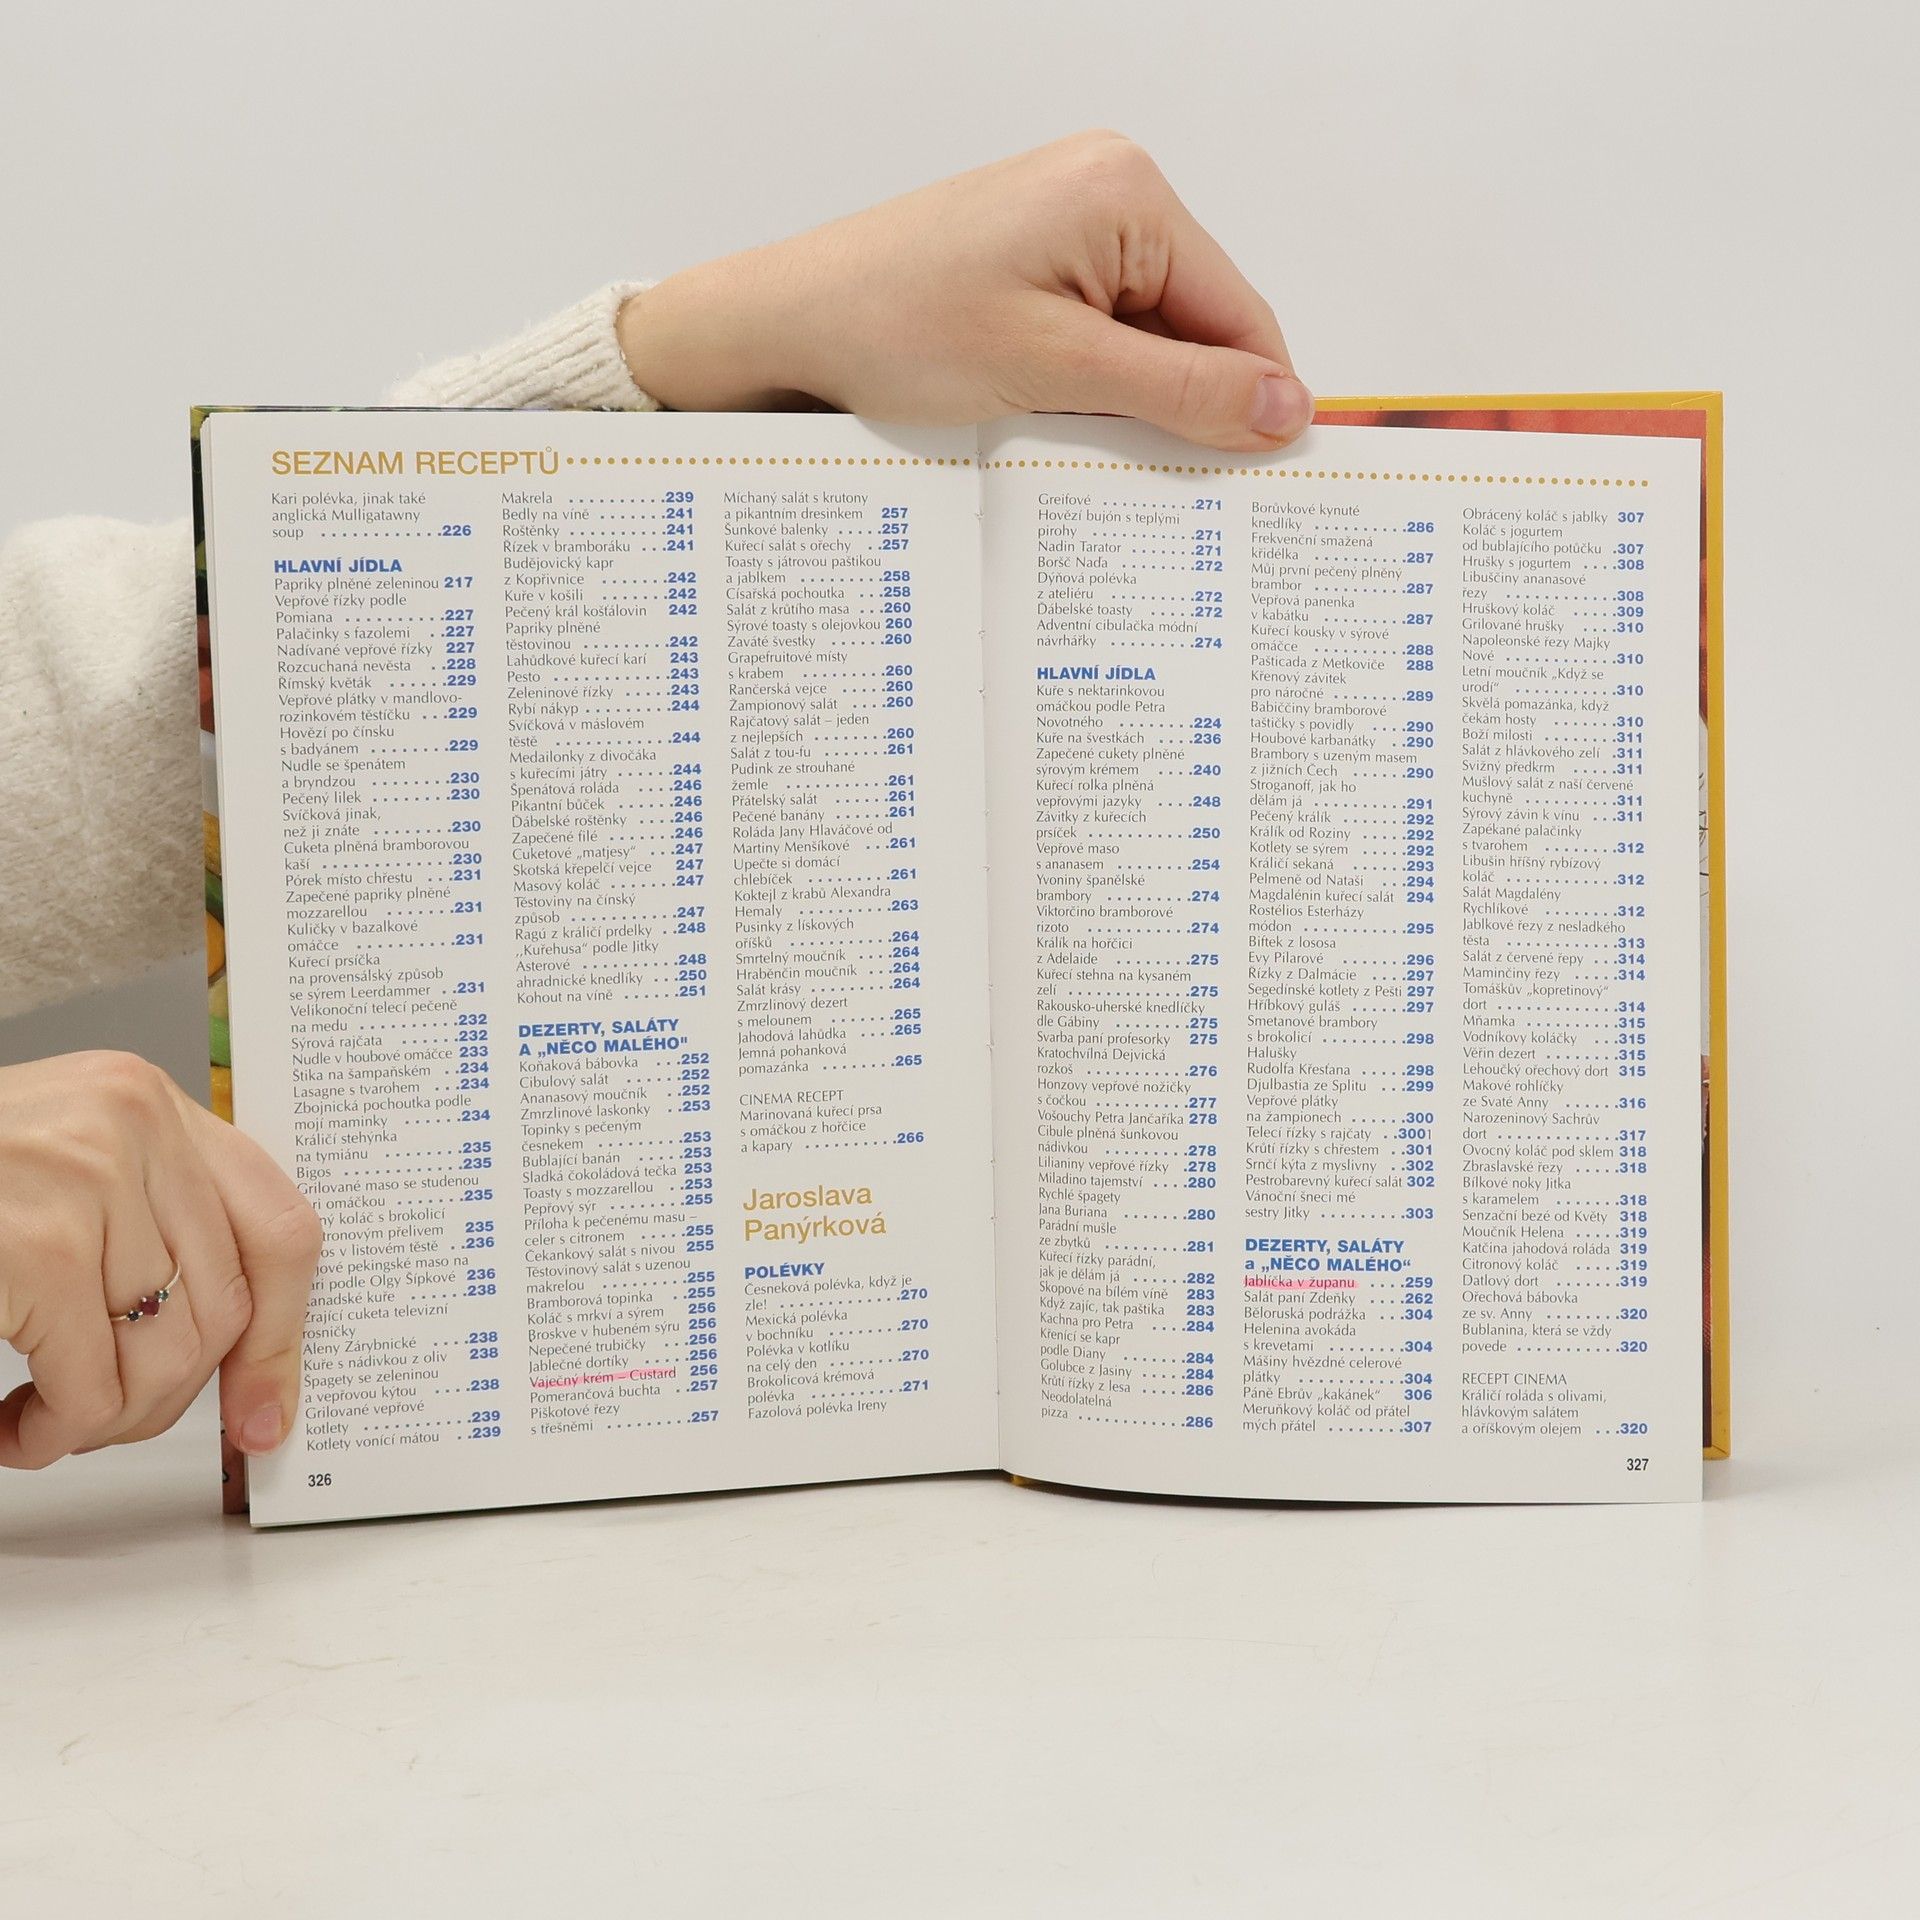 SEZNAM RECEPTŮ
Kari polévka, jinak také
anglická Mulligatawny
soup ............226
HLAVNÍ JÍDLA
Papriky plněné zeleninou 217
Vepřové řízky podle
Pomiana .........227
Palačinky s fazolemi ..227
Nadívané vepřové řízky 227
Rozcuchaná nevěsta ..228
Římský květák .....229
Vepřové plátky v mandlovo-
rozinkovém těstíčku ...229
Hovězí po čínsku
s badyánem ........229
Nudle se špenátem
a bryndzou ........230
Pečený lilek ........230
Svíčková jinak,
než ji znáte ........230
Cuketa plněná bramborovou
kaší .............230
Pórek místo chřestu ...231
Zapečené papriky plněné
mozzarellou .......231
Kuličky v bazalkové
omáčce ..........231
Kuřecí prsíčka
na provensálský způsob
se sýrem Leerdammer ..231
Velikonoční telecí pečeně
na medu ..........232
Sýrová rajčata .......232
Nudle v houbové omáčce 233
Štika na šampaňském ..234
Lasagne s tvarohem ...234
Zbojnická pochoutka podle
mojí maminky .......234
Králičí stehýnka
na tymiánu ........235
Bigos ............235
Grilované maso se studenou
ri omáčkou .......235
ný koláč s brokolicí
tronovým přelivem 235
os v listovém těstě ..236
jové pekingské maso na
ari podle Olgy Šípkové 236
Kanadské kuře ......238
Zrající cuketa televizní
rosničky
Aleny Zárybnické ....238
Kuře s nádivkou z oliv 238
Špagety se zeleninou
a vepřovou kýtou .....238
Grilované vepřové
kotlety ..........239
Kotlety vonící mátou ..239
326
Makrela ..........239
Bedly na víně ......241
Roštěnky .........241
Řízek v bramboráku ...241
Budějovický kapr
z Kopřivnice .......242
Kuře v košili .......242
Pečený král košťálovin 242
Papriky plněné
těstovinou ........242
Lahůdkové kuřecí karí 243
Pesto ...........243
Zeleninové řízky .....243
Rybí nákyp ........244
Svíčková v máslovém
těstě ...........244
Medailonky z divočáka
s kuřecími játry .....244
Špenátová roláda ....246
Pikantní bůček ......246
Ďábelské roštěnky ....246
Zapečené filé .......246
Cuketové „matjesy“ ...247
Skotská křepelčí vejce 247
Masový koláč .......247
Těstoviny na čínský
způsob ..........247
Ragú z králičí prdelky ..248
„Kuřehusa“ podle Jitky
Asterové .........248
ahradnické knedlíky ...250
Kohout na víně ......251
DEZERTY, SALÁTY
A „NĚCO MALÉHO"
Koňaková bábovka ...252
Cibulový salát ......252
Ananasový moučník ..252
Zmrzlinové laskonky ..253
Topinky s pečeným
česnekem .........253
Bublající banán .....253
Sladká čokoládová tečka 253
Toasty s mozzarellou ...253
Pepřový sýr ........255
Příloha k pečenému masu –
celer s citronem .....255
Čekankový salát s nivou 255
Těstovinový salát s uzenou
makrelou .........255
Bramborová topinka ..255
Koláč s mrkví a sýrem 256
Broskve v hubeném sýru 256
Nepečené trubičky ...256
Jablečné dortíky .....256
Vaječný krém – Custard 256
Pomerančová buchta ..257
Piškotové řezy
s třešněmi .........257
Míchaný salát s krutony
a pikantním dresinkem 257
Šunkové balenky .....257
Kuřecí salát s ořechy ..257
Toasty s játrovou paštikou
a jablkem .........258
Císařská pochoutka ...258
Salát z krůtího masa ..260
Sýrové toasty s olejovkou 260
Zaváté švestky ......260
Grapefruitové místy
s krabem .........260
Rančerská vejce .....260
Žampionový salát ....260
Rajčatový salát – jeden
z nejlepších ........260
Salát z tou-fu .......261
Pudink ze strouhané
žemle ...........261
Přátelský salát ......261
Pečené banány ......261
Roláda Jany Hlaváčové od
Martiny Menšíkové ...261
Upečte si domácí
chlebíček .........261
Koktejl z krabů Alexandra
Hemaly ..........263
Pusinky z lískových
oříšků ...........264
Smrtelný moučník ....264
Hraběnčin moučník ...264
Salát krásy ........264
Zmrzlinový dezert
s melounem ........265
Jahodová lahůdka ....265
Jemná pohanková
pomazánka ........265
CINEMA RECEPT
Marinovaná kuřecí prsa
s omáčkou z hořčice
a kapary ..........266
Jaroslava
Panýrková
POLÉVKY
Česneková polévka, když je
zle! .............270
Mexická polévka
v bochníku ........270
Polévka v kotlíku
na celý den ........270
Brokolicová krémová
polévka ..........271
Fazolová polévka Ireny
Greifové ..........271
Hovězí bujón s teplými
pirohy ...........271
Nadin Tarator ......271
Boršč Naďa ........272
Dýňová polévka
z ateliéru .........272
Ďábelské toasty .....272
Adventní cibulačka módní
návrhářky .........274
HLAVNÍ JÍDLA
Kuře s nektarinkovou
omáčkou podle Petra
Novotného ........224
Kuře na švestkách ....236
Zapečené cukety plněné
sýrovým krémem ....240
Kuřecí rolka plněná
vepřovými jazyky ....248
Závitky z kuřecích
prsíček ..........250
Vepřové maso
s ananasem ........254
Yvoniny španělské
brambory .........274
Viktorčino bramborové
rizoto ...........274
Králík na hořčici
z Adelaide .........275
Kuřecí stehna na kysaném
zelí .............275
Rakousko-uherské knedlíčky
dle Gábiny ........275
Svarba paní profesorky 275
Kratochvílná Dejvická
rozkoš ...........276
Honzovy vepřové nožičky
s čočkou ..........277
Vošouchy Petra Jančaříka 278
Cibule plněná šunkovou
nádivkou .........278
Lilianiny vepřové řízky .278
Miladino tajemství ....280
Rychlé špagety
Jana Buriana .......280
Parádní mušle
ze zbytků .........281
Kuřecí řízky parádní,
jak je dělám já ......282
Skopové na bílém víně 283
Když zajíc, tak paštika 283
Kachna pro Petra ....284
Křenící se kapr
podle Diany .......284
Golubce z Jasiny .....284
Krůtí řízky z lesa .....286
Neodolatelná
pizza ............286
Borůvkové kynuté
knedlíky ..........286
Frekvenční smažená
křidélka ..........287
Můj první pečený plněný
brambor ..........287
Vepřová panenka
v kabátku .........287
Kuřecí kousky v sýrové
omáčce ..........288
Pašticada z Metkoviče 288
Křenový závitek
pro náročné ........289
Babiččiny bramborové
taštičky s povidly ....290
Houbové karbanátky ..290
Brambory s uzeným masem
z jižních Čech ......290
Stroganoff, jak ho
dělám já ..........291
Pečený králík .......292
Králík od Roziny .....292
Kotlety se sýrem .....292
Králičí sekaná ......293
Pelmeně od Nataši ...294
Magdalénin kuřecí salát 294
Rostélios Esterházy
módon ...........295
Biftek z lososa
Evy Pilarové .......296
Řízky z Dalmácie ....297
Segedínské kotlety z Pešti 297
Hříbkový guláš ......297
Smetanové brambory
s brokolicí .........298
Halušky
Rudolfa Křesťana ....298
Djulbastia ze Splitu ...299
Vepřové plátky
na žampionech ......300
Telecí řízky s rajčaty ..300
Krůtí řízky s chřestem ..301
Srnčí kýta z myslivny ..302
Pestrobarevný kuřecí salát 302
Vánoční šneci mé
sestry Jitky .........303
DEZERTY, SALÁTY
a „NĚCO MALÉHO“
Jablíčka v županu ....259
Salát paní Zdeňky ....262
Běloruská podrážka ...304
Helenina avokáda
s krevetami ........304
Mášiny hvězdné celerové
plátky ...........304
Páně Ebrův „kakánek“ 306
Meruňkový koláč od přátel
mých přátel ........307
Obrácený koláč s jablky 307
Koláč s jogurtem
od bublajícího potůčku .307
Hrušky s jogurtem ....308
Libuščiny ananasové
řezy ............308
Hruškový koláč .....309
Grilované hrušky ....310
Napoleonské řezy Majky
Nové ............310
Letní moučník „Když se
urodí“ ...........310
Skvělá pomazánka, když
čekám hosty .......310
Boží milosti ........311
Salát z hlávkového zelí .311
Svižný předkrm .....311
Mušlový salát z naší červené
kuchyně ..........311
Sýrový závin k vínu ...311
Zapékané palačinky
s tvarohem ........312
Libušin hříšný rybízový
koláč ............312
Salát Magdalény
Rychlíkové ........312
Jablkové řezy z nesladkého
těsta ............313
Salát z červené řepy ..314
Maminčiny řezy .....314
Tomáškův „kopretinový“
dort ............314
Mňamka .........315
Vodníkovy koláčky ...315
Věřin dezert .......315
Lehoučký ořechový dort 315
Makové rohlíčky
ze Svaté Anny ......316
Narozeninový Sachrův
dort ............317
Ovocný koláč pod sklem 318
Zbraslavské řezy .....318
Bílkové noky Jitka
s karamelem .......318
Senzační bezé od Květy 318
Moučník Helena .....319
Katčina jahodová roláda 319
Citronový koláč .....319
Datlový dort .......319
Ořechová bábovka
ze sv. Anny ........320
Bublanina, která se vždy
povede ..........320
RECEPT CINEMA
Králičí roláda s olivami,
hlávkovým salátem
a oříškovým olejem ...320
327